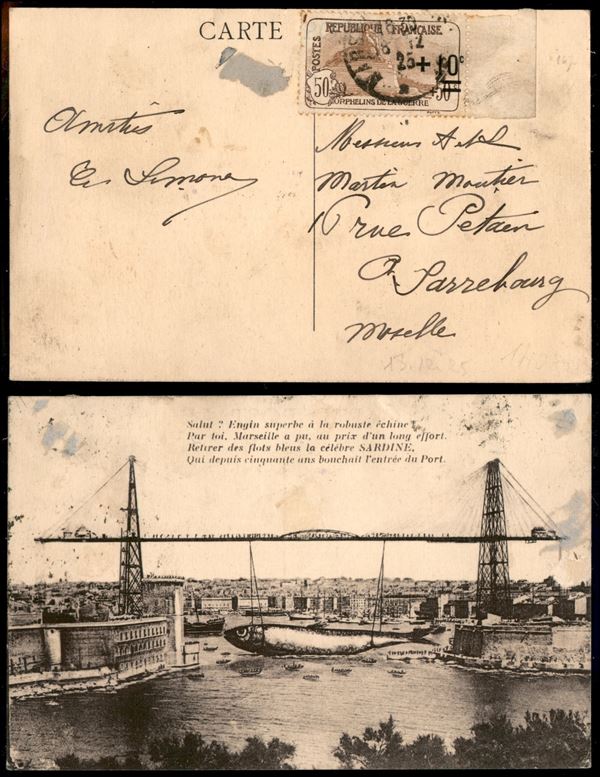 CARTE
REPUBLIQUE FRANÇAISE
POSTES
50c
+10c
ORPHELINS DE LA GUERRE
Amitiés
Simone
Messieurs A & L
Martin Moutier
rue Petain
Sarrebourg
Moselle
Salut ? Engin superbe à la robuste échine !
Par toi, Marseille a pu, au prix d'un long effort.
Retirer des flots bleus la célèbre SARDINE,
Qui depuis cinquante ans bouchait l'entrée du Port.